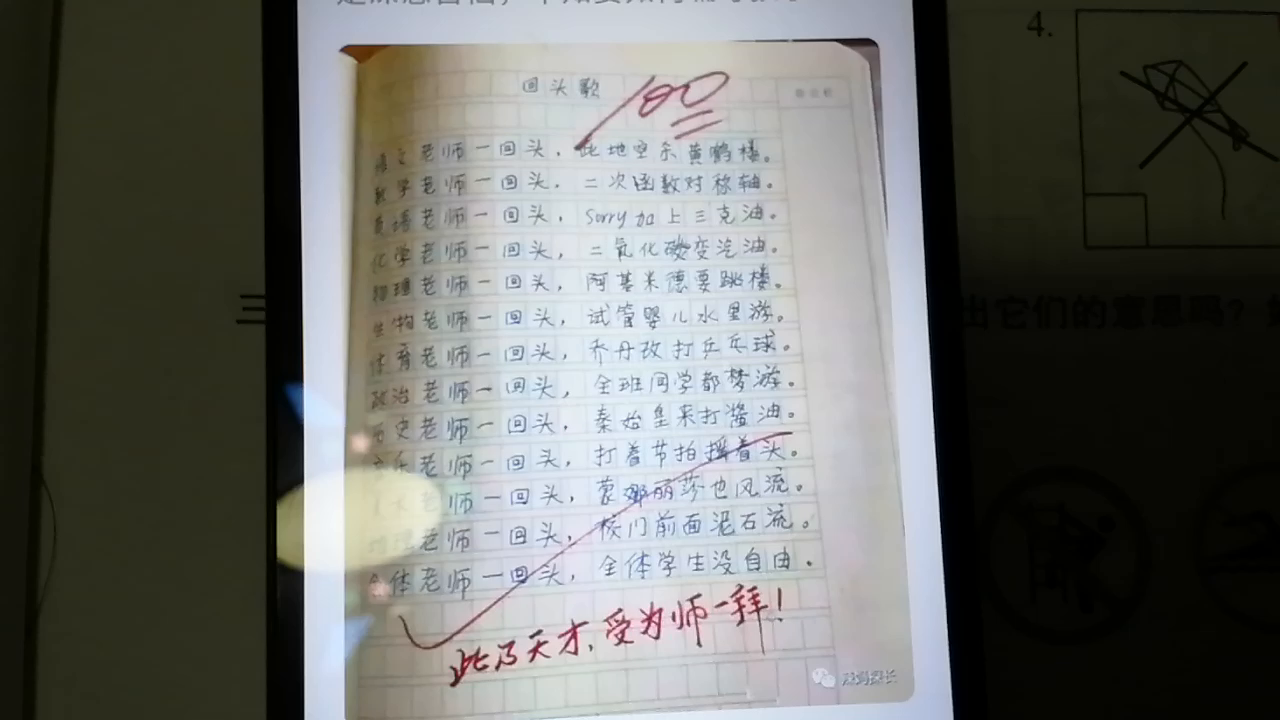 回头歌
100
语文老师一回头，此地空余黄鹤楼。
数学老师一回头，二次函数对称轴。
英语老师一回头，sorry加上三克油。
化学老师一回头，二氧化碳变汽油。
物理老师一回头，阿基米德要跳楼。
生物老师一回头，试管婴儿水里游。
体育老师一回头，乔丹改打乒乓球。
政治老师一回头，全班同学都梦游。
历史老师一回头，秦始皇来打酱油。
音乐老师一回头，打着节拍摇着头。
美术老师一回头，蒙娜丽莎也风流。
地理老师一回头，校门前面泥石流。
全体老师一回头，全体学生没自由.
此乃天才，受为师一拜！
4.
三
出它们的意思吗？